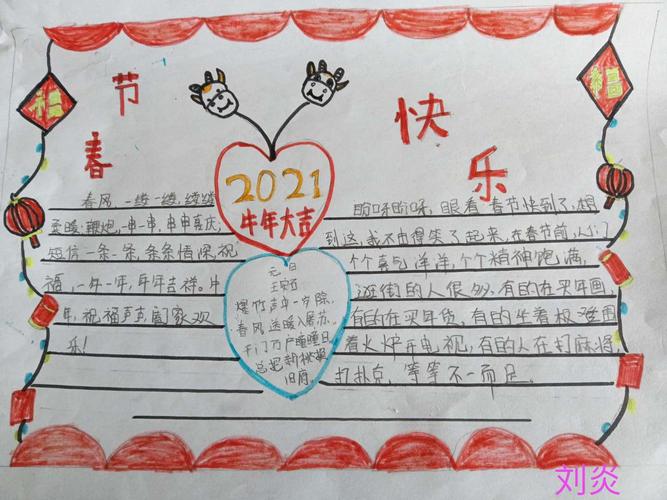 福
节
快
福
春
乐
2021
牛年大吉
春风,一缕一缕,缕缕
柔暖,鞭炮,一串一串,串串喜庆;
短信一条一条,条条情深,祝
福,一年一年,年年吉祥。牛
年,祝福声声,阖家欢
乐!
元日
王安石
爆竹声中一岁除,
春风送暖入屠苏.
千门万户曈曈日,
总把新桃换
旧符。
盼呀盼呀,眼看春节快到了,想
到这,我不由得笑了起来,在春节前,人们
个个喜气洋洋,个个精神饱满,
逛街的人很多,有的在买年画,
有的在买年货,有的坐着板凳围
着火炉看电视,有的人在打麻将,
打扑克,等等不一而足。
刘炎